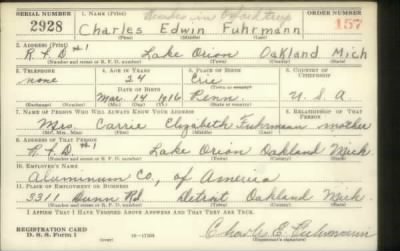 SERIAL NUMBER 1. NAME (Print) ORDER NUMBER
2928 Charles Edwin Fuhrmann 157
(First) (Middle) (Last)
2. ADDRESS (Print)
R.F.D #1 Lake Orion Oakland Mich
(Number and street or R. F. D. number) (Town) (County) (State)
3. TELEPHONE 4. AGE IN YEARS 5. PLACE OF BIRTH 6. COUNTRY OF CITIZENSHIP
none 24 Erie
DATE OF BIRTH (Town or county)
Mar. 14 1916 Penn. U.S.A
(Exchange) (Number) (Mo.) (Day) (Yr.) (State or country)
7. NAME OF PERSON WHO WILL ALWAYS KNOW YOUR ADDRESS 8. RELATIONSHIP OF THAT PERSON
Mrs. Carrie Elizabeth Fuhrmann mother
(Mr., Mrs., Miss) (First) (Middle) (Last)
9. ADDRESS OF THAT PERSON
R.F.D. #1 Lake Orion Oakland Mich.
(Number and street or R. F. D. number) (Town) (County) (State)
10. EMPLOYER'S NAME
Aluminum Co, of America
11. PLACE OF EMPLOYMENT OR BUSINESS
3311 Dunn Rd Detroit Oakland Mich.
(Number and street or R. F. D. number) (Town) (County) (State)
I AFFIRM THAT I HAVE VERIFIED ABOVE ANSWERS AND THAT THEY ARE TRUE.
REGISTRATION CARD
D. S. S. Form 1 16-17105 Charles E. Fuhrmann
(Registrant's signature)